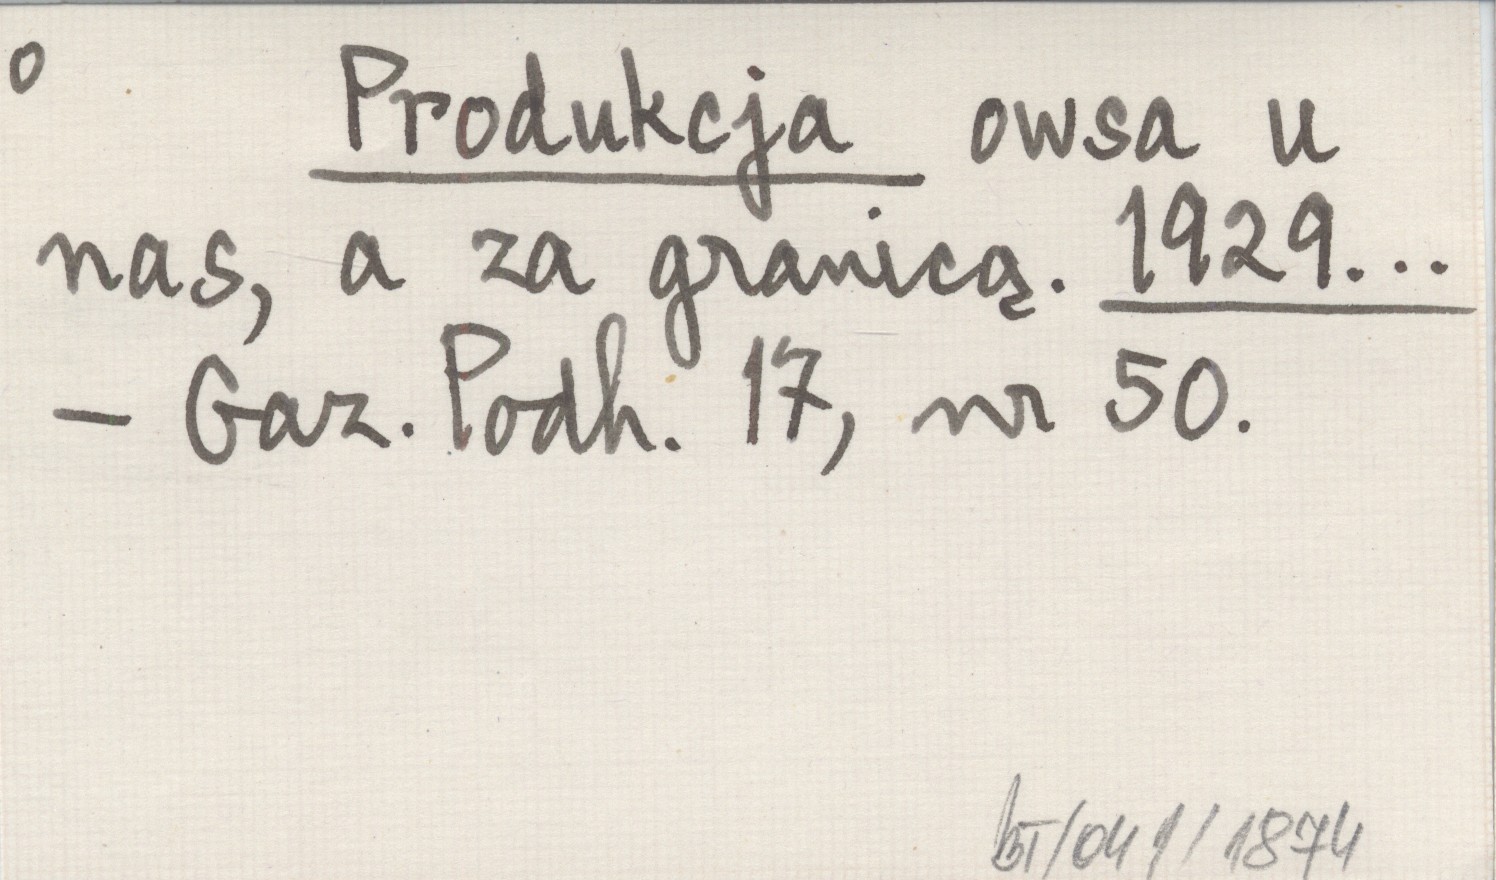 o
Produkcja owsa u
nas, a za granicą. 1929...
- Gaz. Podh. 17, nr 50.
/1874